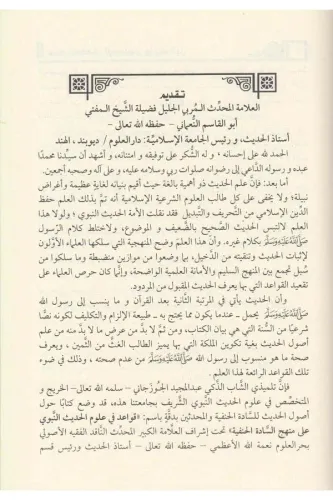 تقديم
العلامة المحدّث المربي الجليل فضيلة الشّيخ المفتي
أبو القاسم النُّعماني – حفظه الله تعالى –
أستاذ الحديث، و رئيس الجامعة الإسلاميّة: دارالعلوم / ديوبند، الهند
الحمد لله على إحسانه ، و له الشّكر على توفيقه و امتنانه، و أشهد أن سيّدنا محمدًا
عبده و رسوله الدّاعي إلى رضوانه صلوات ربي و سلامه عليه، و على آله و صحبه أجمعين.
أما بعد: فإنّ علم الحديث ذو أهمية بالغة حيث أقيم بنيانه لغاية عظيمة وأغراض
نبيلة؛ ولا يخفى على كل طالب العلوم الشرعية الإسلامية أنه تمّ بذلك العلم حفظ
الدّين الإسلامي من التّحريف والتّبديل فقد نقلت الأمة الحديث النبوي ؛ ولولا هذا
العلم لالتبس الحديث الصّحيح بالضّعيف و الموضوع، ولاختلط كلام الرّسول
ﷺ بكلام غيره. وأن هذا العلم وضح المنهجية التي سلكها العلماء الأوّلون
لإثبات الحديث وتنقيته من الدّخيل، بما وضعوا من موازين منضبطة وما سلكوا من
سُبل تجمع بين المنهج السليم والأمانة العلمية الواضحة، وإنّما كان حرص العلماء على
تقعيد القواعد التي بها يعرف الحديث المقبول من المردود.
وأن الحديث يأتي في المرتبة الثّانية بعد القرآن و ما ينسب إلى رسول الله
ﷺ يحمل – عندما يكون مما يحتج به – طبيعة الإلزام والتّكليف لكونه نصًّا
شرعيًا من السُّنة التي هي بيان الكتاب، ومن ثمّ لا بدّ من عرض ما لا بدّ منه من علم
أصول الحديث بغية تكوين الملكة التي بها يميز الطالب الغثّ من الثّمين ، ويعرف
صحة ما هو منسوب إلى رسول الله ﷺ من عدم صحته ، وذلك في ضوء
تلك القواعد الرائعة لهذا العلم .
فإنّ تلميذي الشاب الذّكي عبدالمجيد الجُوزجاني – سلمه الله تعالى- الخريج و
المتخصّص في علوم الحديث النّبوي الشّريف بجامعتنا هذه، قد وضع كتابًا حول
أصول الحديث للسّادة الحنفية والمحدثين بدقّة باسم: «قواعد في علوم الحديث النّبوي
على منهج السّادة الحنفية» تحت إشراف العلّامة الكبير المحدّث النّاقد الفقيه الأصولي
بحرالعلوم نعمة الله الأعظمي – حفظه الله تعالى – أستاذ الحديث ورئيس قسم